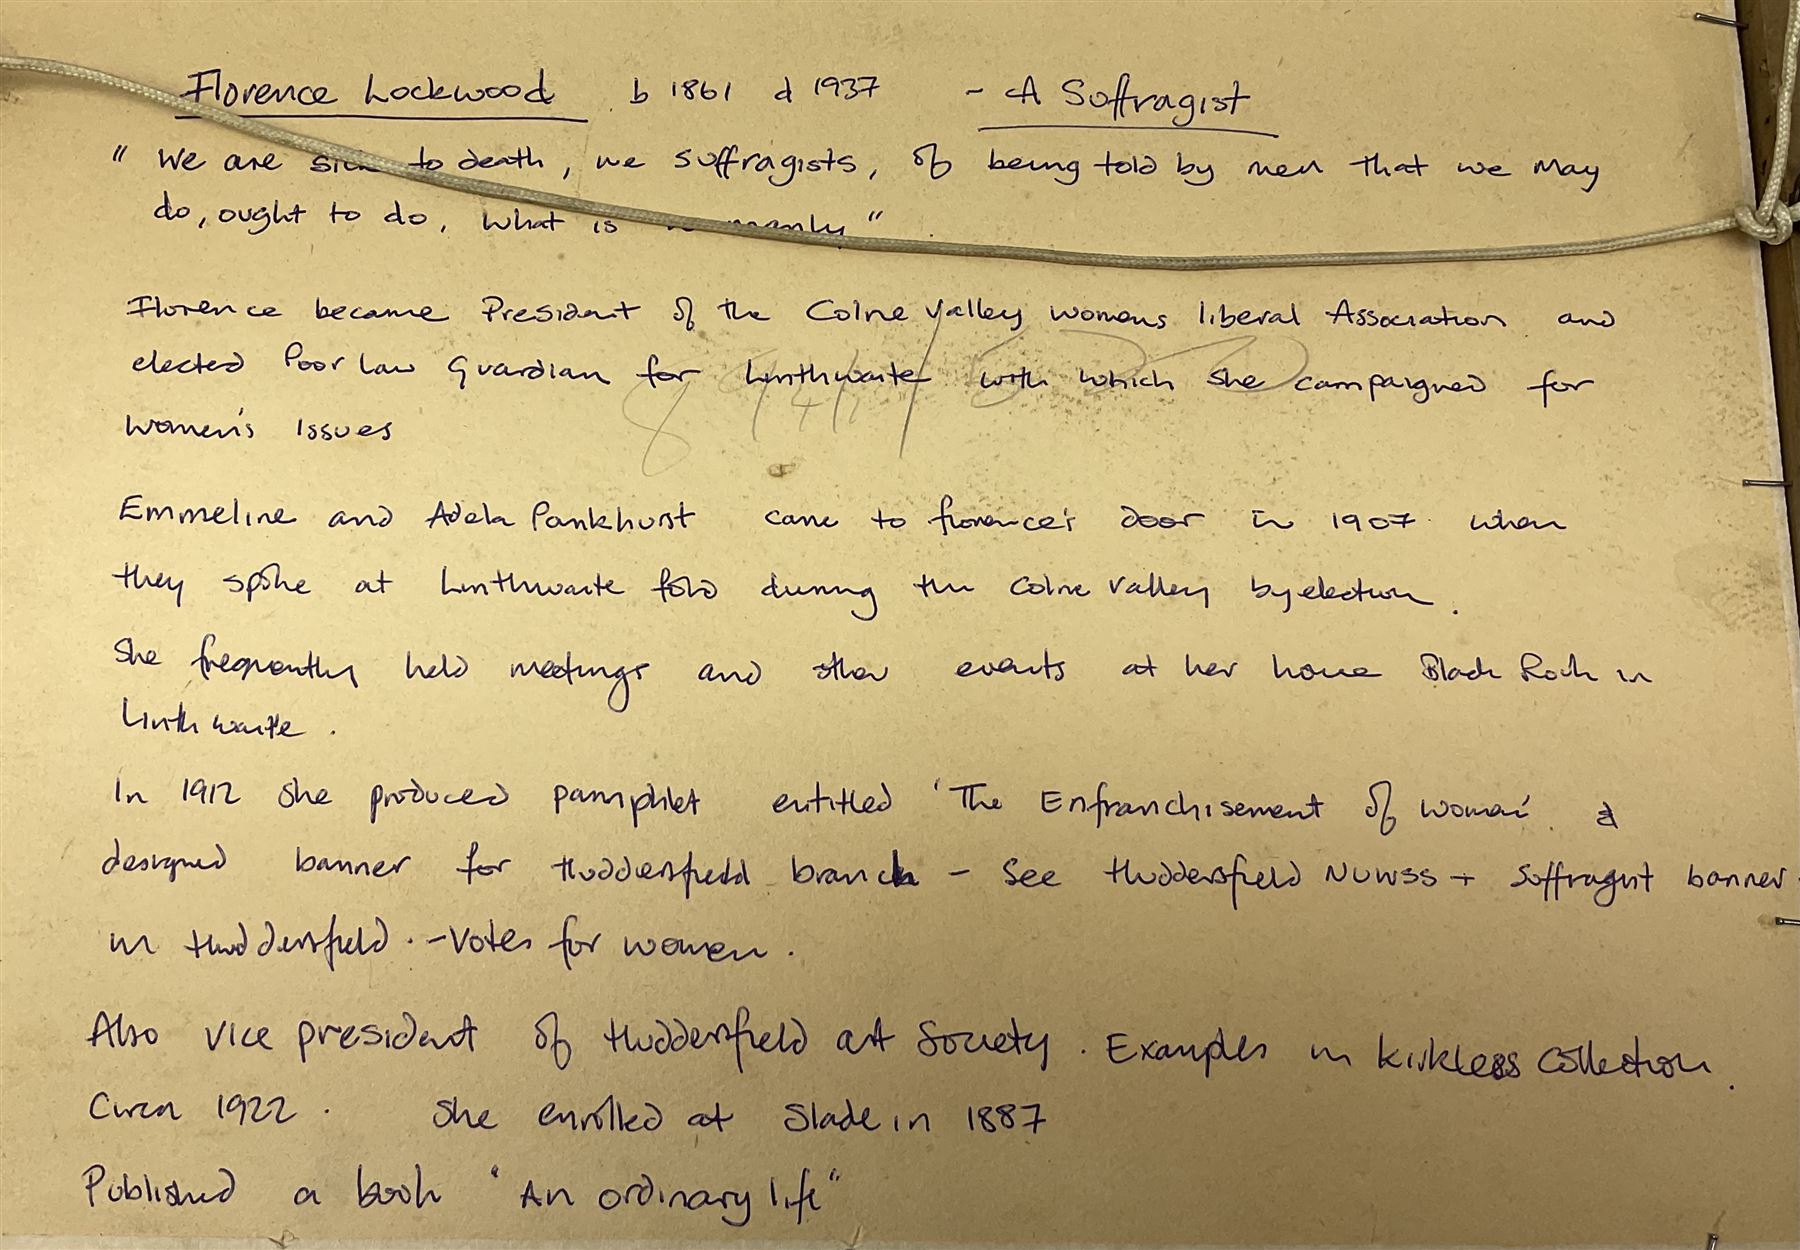 Florence Lockwood b 1861 d 1937 - A Suffragist
" We are sick to death, we suffragists, of being told by men that we may
do, ought to do, what is womanly"
Florence became President of the Colne Valley womens liberal Association and
elected Poor Law Guardian for Linthwaite with which she campaigned for
women's issues
Emmeline and Adela Pankhurst came to florence's door in 1907 when
they spoke at Linthwaite fold during the Colne Valley by election.
She frequently held meetings and other events at her home Black Rock in
Linthwaite.
In 1912 she produced pamphlet entitled 'The Enfranchisement of women' &
designed banner for Huddersfield branch - See Huddersfield NUWSS + Suffragist banner
in Huddersfield. - Votes for women.
Also vice president of Huddersfield art Society. Examples in Kirkless Collection.
Circa 1922. She enrolled at Slade in 1887
Published a book "An ordinary life"